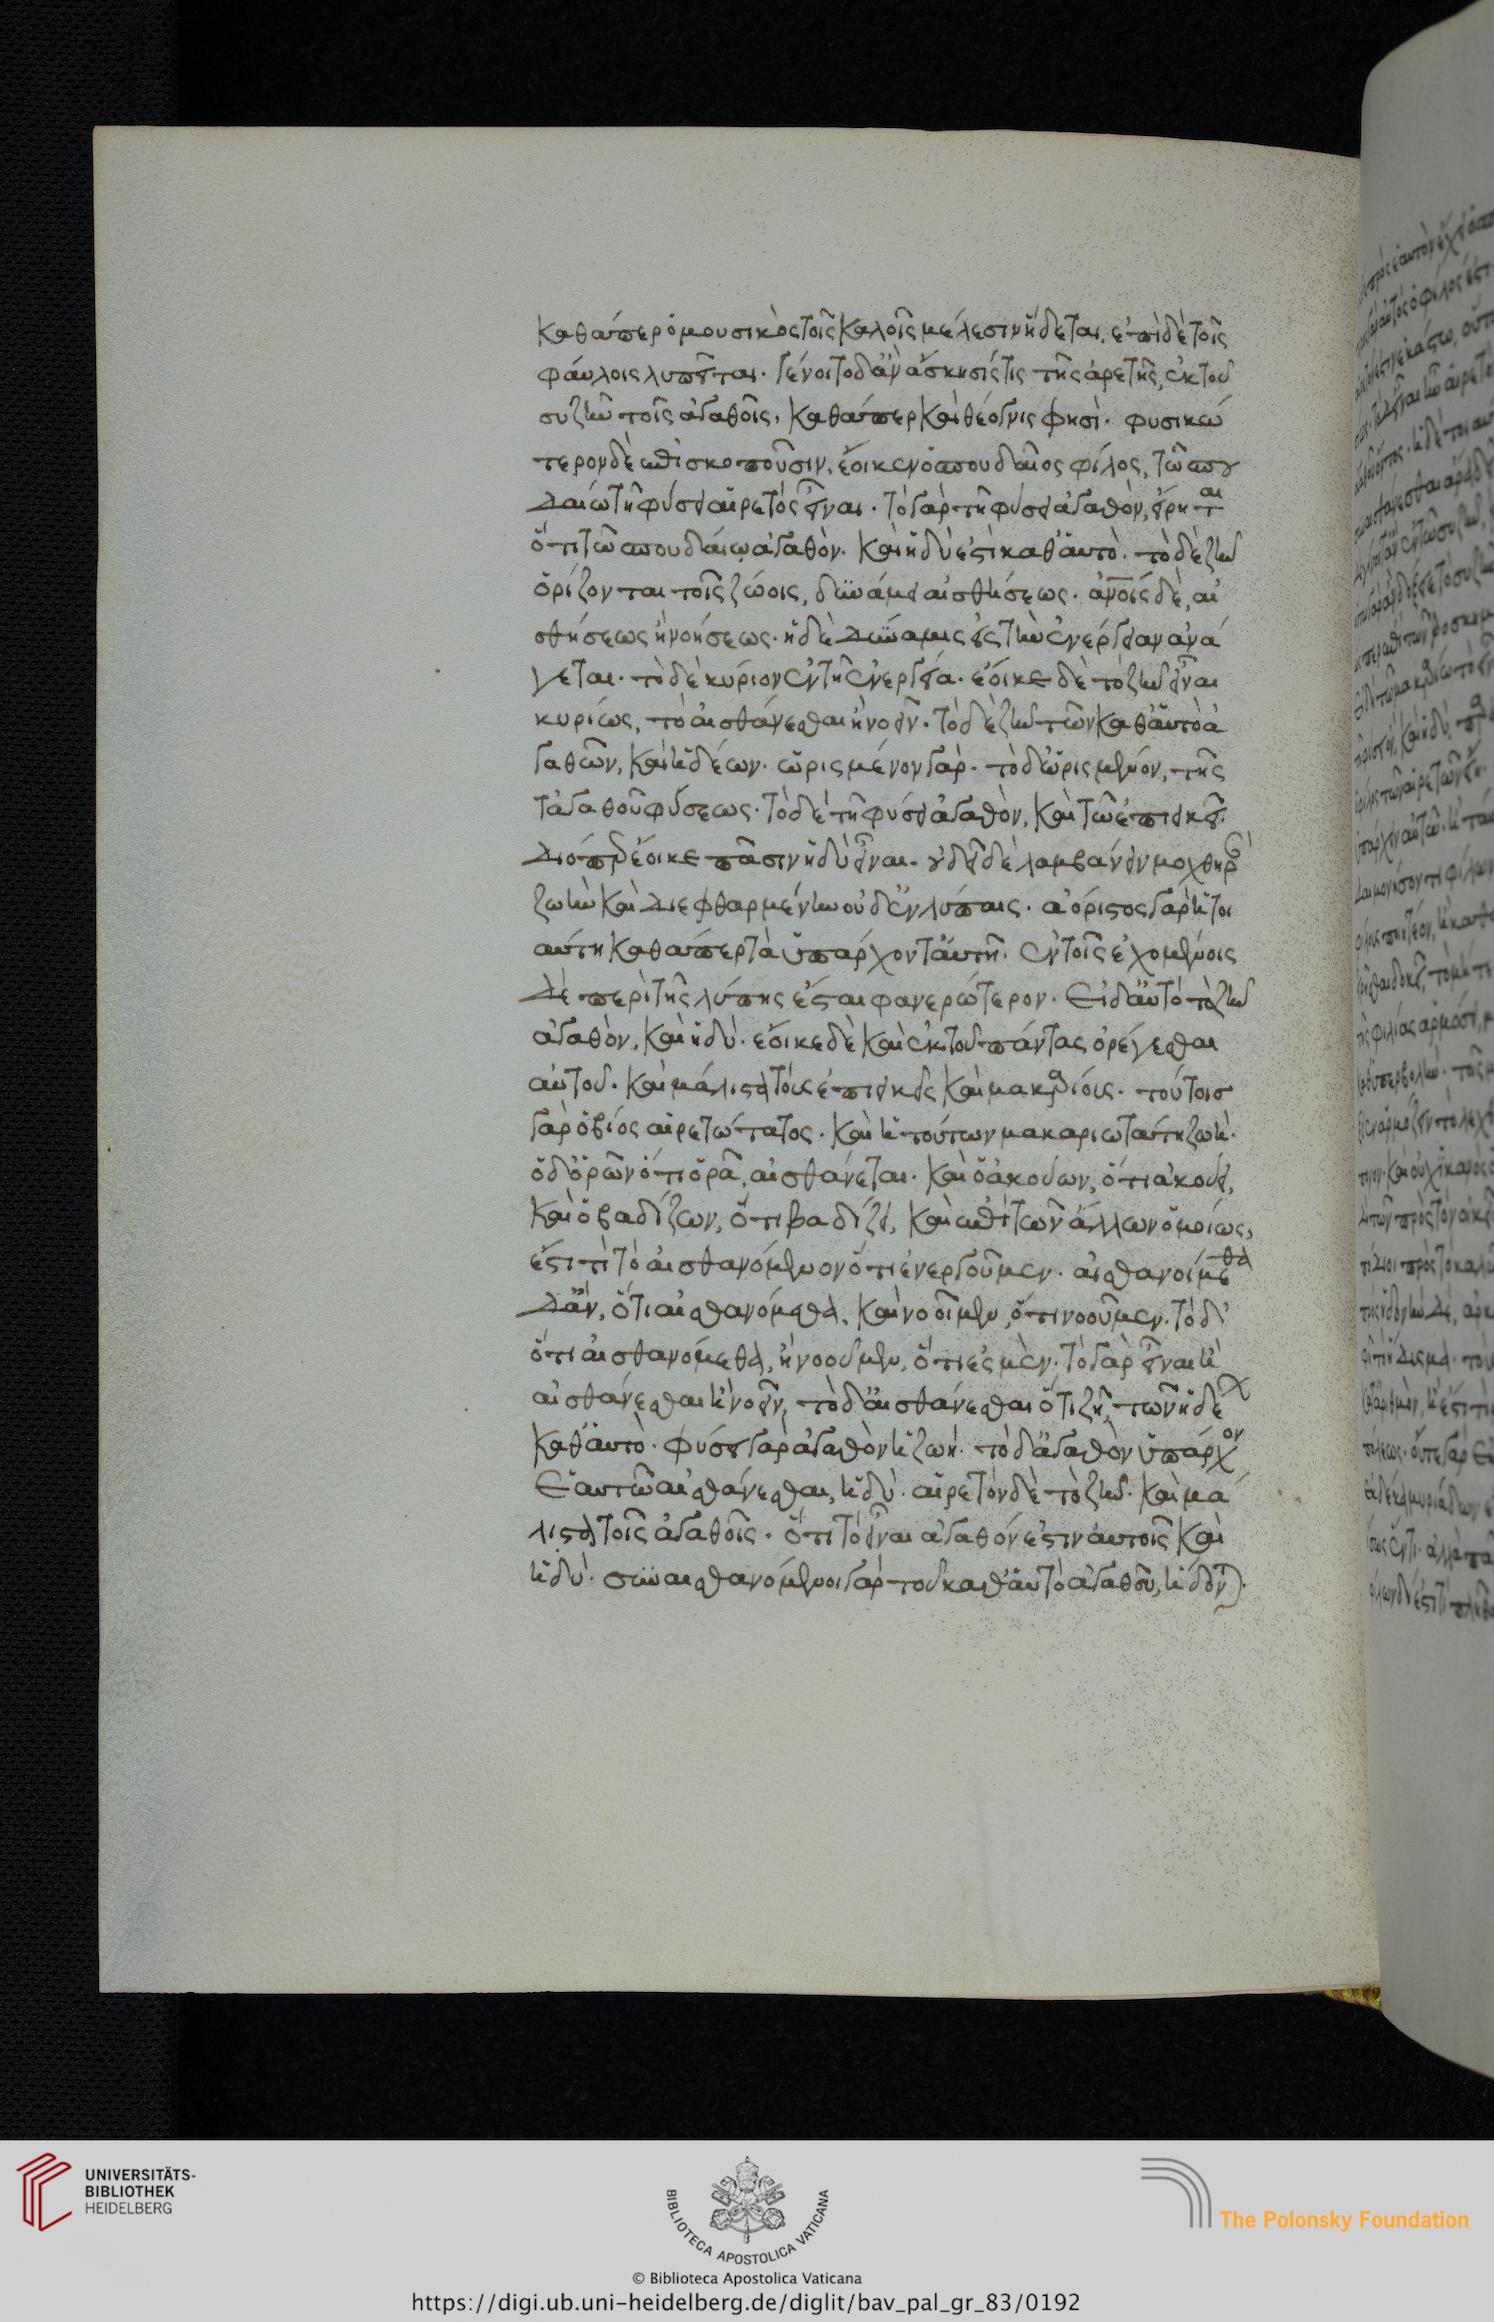 καθάπερ ὁ μουσικὸς τοῖς καλοῖς μέλεσιν ἥδεται, ἐπὶ δὲ τοῖς
φάυλοις λυπεῖται. γένοιτο δ' ἂν ἄσκησίς τις τῆς ἀρετῆς, ἐκ τοῦ
συζῆν τοῖς ἀγαθοῖς, καθάπερ καὶ θέογνις φησὶ. φυσικώ
τερον δὲ ἐπισκοποῦσιν, ἔοικεν ὁ σπουδαῖος φίλος, τῶ σπου
δαίω τῆ φύσει αἱρετός εἶναι. τὸ γὰρ τῆ φύσει ἀγαθὸν, εἴρηται
ὅτι τῶ σπουδαίω ἀγαθὸν. καὶ ἡδύ ἐστὶ καθ' ἁυτὸ. τὸ δὲ ζῆν
ὁρίζονται τοῖς ζώοις, δυνάμει αἰσθήσεως. ἀνοις δὲ, αἰ
σθήσεως ἢ νοήσεως. ἡ δὲ δύναμις εἰς τὴν ἐνέργειαν ἀνά
γεται. τὸ δὲ κύριον ἐν τῆ ἐνεργεία. ἐόικε δὲ τὸ ζῆν εἶναι
κυρίως, τὸ αἰσθάνεσθαι ἢ νοεῖν. τὸ δὲ ζῆν τῶν καθ' ἁυτὸ ἀ
γαθῶν, καὶ ἡδέων. ὡρισμένον γὰρ. τὸ δ' ὡρισμένον, τῆς
τἀγαθοῦ φύσεως. τὸ δὲ τῆ φύσει ἀγαθὸν, καὶ τῶ ἐπιεικεῖ.
διόπερ ἔοικε πᾶσιν ἡδὺ εἶναι. οὐ δεῖ δὲ λαμβάνειν μοχθηρὰν
ζωὴν καὶ διεφθαρμένην οὐδ' ἐν λύπαις. ἀόριστος γὰρ ἡ τοι
αύτη καθάπερ τὰ ὑπάρχοντ' ἀυτῆ. ἐν τοῖς ἐχομένοις
δὲ περὶ τῆς λύπης ἔσται φανερώτερον. Εἰ δ' ἀυτὸ τὸ ζῆν
ἀγαθὸν, καὶ ἡδύ. ἐόικε δὲ καὶ ἐκ τοῦ πάντας ὀρέγεσθαι
αὐτοῦ. καὶ μάλιστα τοὺς ἐπιεικεῖς καὶ μακαρίους. τούτοισ
γὰρ ὁ βίος αἱρετώτατος. καὶ ἡ τούτων μακαριωτάτη ζωή.
ὁ δ' ὁρῶν ὅτι ὁρᾶ, αἰσθάνεται. καὶ ὁ ἀκούων, ὅτι ἀκούει,
καὶ ὁ βαδίζων, ὅτι βαδίζει, καὶ ἐπὶ τῶν ἄλλων ὁμοίως,
ἔστι τὶ τὸ αἰσθανόμενον ὅτι ἐνεργοῦμεν. αἰσθανοίμεθα
δ' ἂν, ὅτι αἰσθανόμεθα, καὶ νοοῖμεν, ὅτι νοοῦμεν. τὸ δ'
ὅτι αἰσθανόμεθα, ἢ νοοῦμεν, ὅτι ἐσμὲν. τὸ γὰρ εἶναι ἦ
αἰσθάνεσθαι ἢ νοεῖν, τὸ δ' αἰσθάνεσθαι ὅτι ζῆ, τῶν ἡδέων
καθ' ἁυτὸ. φύσει γὰρ ἀγαθὸν ἡ ζωή. τὸ δ' ἀγαθὸν ὑπάρχον
Ἑαυτῶ αἰσθάνεσθαι, ἡδύ. αἱρετὸν δὲ τὸ ζῆν. καὶ μά
λιστα τοῖς ἀγαθοῖς. ὅτι τὸ εἶναι ἀγαθόν ἐστιν ἀυτοῖς καὶ
ἡδύ. συναισθανόμενοι γὰρ τοῦ καθ' ἁυτὸ ἀγαθοῦ, ἥδονται.
UNIVERSITÄTS-
BIBLIOTHEK
HEIDELBERG
BIBLIOTECA APOSTOLICA VATICANA
The Polonsky Foundation
© Biblioteca Apostolica Vaticana
https://digi.ub.uni-heidelberg.de/diglit/bav_pal_gr_83/0192